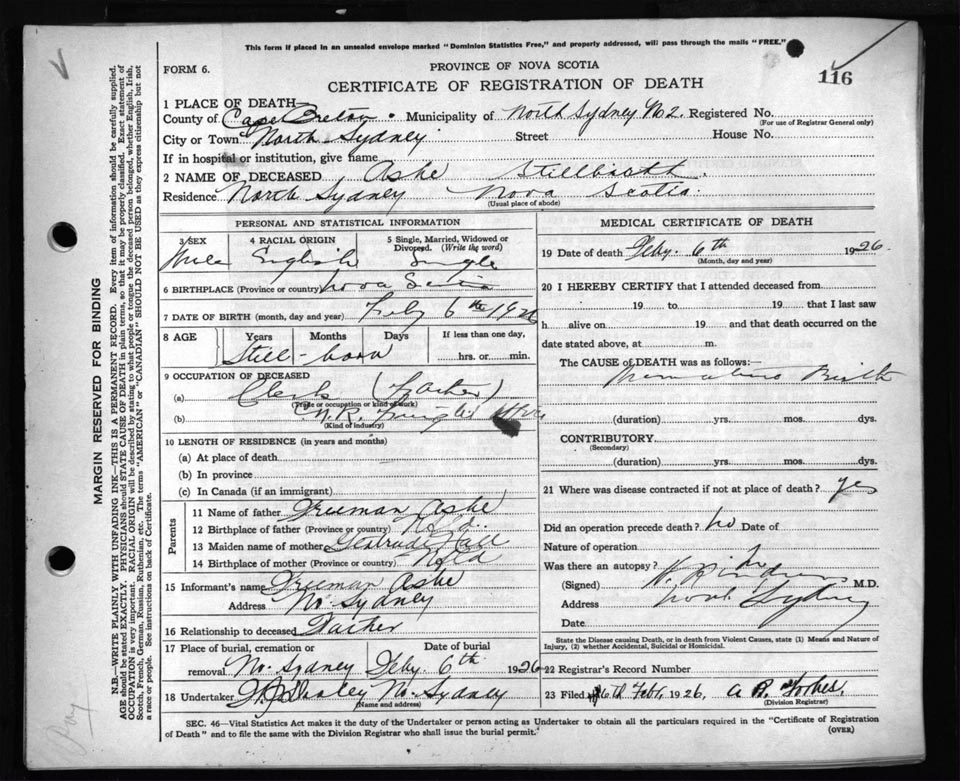 This form if placed in an unsealed envelope marked "Dominion Statistics Free," and properly addressed, will pass through the mails "FREE."
FORM 6.
PROVINCE OF NOVA SCOTIA
CERTIFICATE OF REGISTRATION OF DEATH
116
1 PLACE OF DEATH
County of Cape Breton Municipality of North Sydney No 2. Registered No.
(For use of Registrar General only)
City or Town North Sydney Street House No.
If in hospital or institution, give name
2 NAME OF DECEASED Ashe Stillbirth
Residence North Sydney Nova Scotia
(Usual place of abode)
PERSONAL AND STATISTICAL INFORMATION
3 SEX 4 RACIAL ORIGIN 5 Single, Married, Widowed or Divorced. (Write the word)
English Single
6 BIRTHPLACE (Province or country) Nova Scotia
7 DATE OF BIRTH (month, day and year) Feby 6th 1926
8 AGE Years Months Days If less than one day,
Still-born hrs. or min.
9 OCCUPATION OF DECEASED
(a) Clerk (Father)
(Trade or occupation or kind of work)
(b) C.N.R. Freight Office
(Kind of industry)
10 LENGTH OF RESIDENCE (in years and months)
(a) At place of death
(b) In province
(c) In Canada (if an immigrant)
Parents
11 Name of father Freeman Ashe
12 Birthplace of father (Province or country) Nfld.
13 Maiden name of mother Gertrude Hall
14 Birthplace of mother (Province or country) Nfld
15 Informant's name Freeman Ashe
Address No Sydney
16 Relationship to deceased Father
17 Place of burial, cremation or
removal No. Sydney Feby. 6th 1926
18 Undertaker No Sydney
(Name and address)
MEDICAL CERTIFICATE OF DEATH
19 Date of death Feby. 6th 1926
(Month, day and year)
20 I HEREBY CERTIFY that I attended deceased from
19 to 19 that I last saw
h alive on 19 and that death occurred on the
date stated above, at m.
The CAUSE of DEATH was as follows:
Premature Birth
(duration) yrs. mos. dys.
CONTRIBUTORY
(Secondary)
(duration) yrs. mos. dys.
21 Where was disease contracted if not at place of death? yes
Did an operation precede death? no Date of
Nature of operation
Was there an autopsy? no
(Signed) M.D.
Address North Sydney
Date
State the Disease causing Death, or in death from Violent Causes, state (1) Means and Nature of
Injury, (2) whether Accidental, Suicidal or Homicidal.
22 Registrar's Record Number
23 Filed 16th Febr. 1926, A B. Forbes.
(Division Registrar)
SEC. 46—Vital Statistics Act makes it the duty of the Undertaker or person acting as Undertaker to obtain all the particulars required in the "Certificate of Registration
of Death" and to file the same with the Division Registrar who shall issue the burial permit.
(OVER)
MARGIN RESERVED FOR BINDING
N.B.—WRITE PLAINLY WITH UNFADING INK—THIS IS A PERMANENT RECORD. Every item of information should be carefully supplied.
AGE should be stated EXACTLY. PHYSICIANS should STATE CAUSE OF DEATH in plain terms, so that it may be properly classified. Exact statement of
OCCUPATION is very important. RACIAL ORIGIN will be described by stating to what people or tongue the deceased person belonged, whether English, Irish,
Scotch, French, German, Russian, Ruthenian, etc. The terms "AMERICAN" or "CANADIAN" SHOULD NOT BE USED as they express citizenship but not
a race or people. See instructions on back of Certificate.